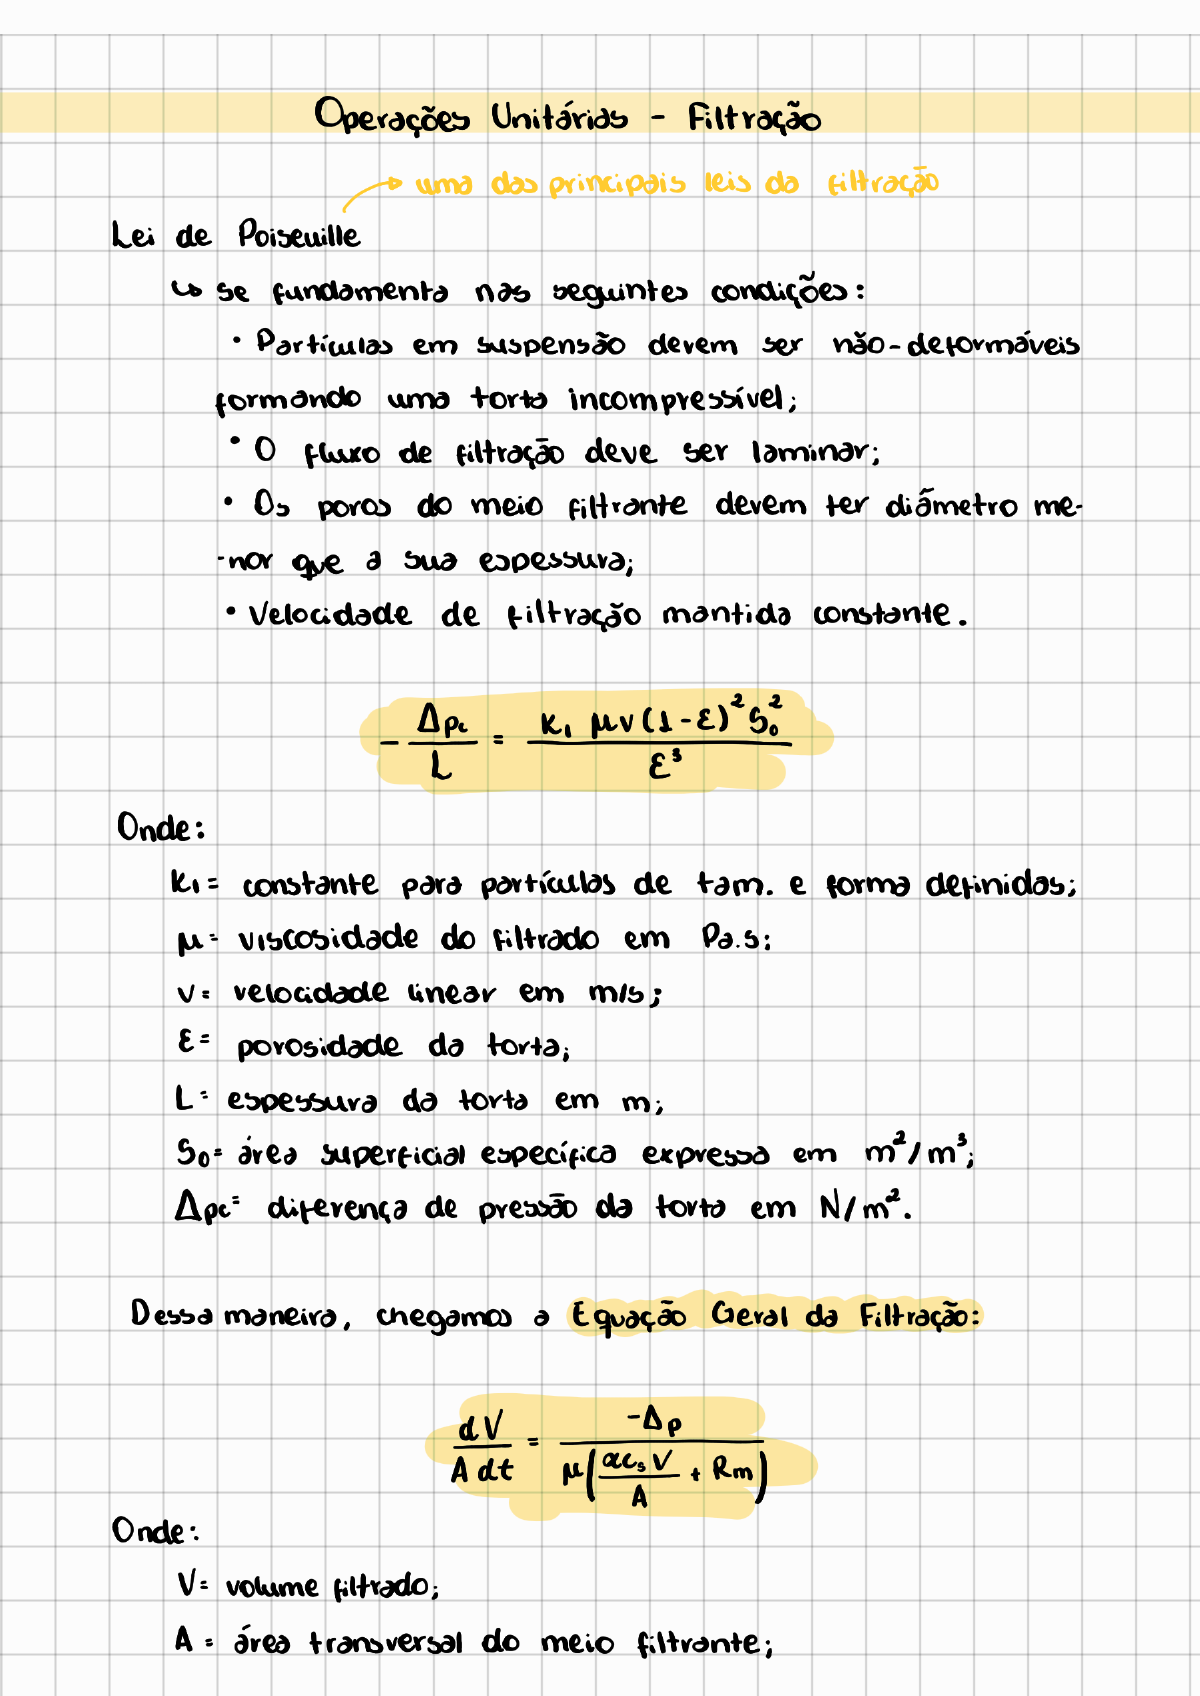 Operações Unitárias - Filtração
→ uma das principais leis da filtração
Lei de Poiseuille
↳ se fundamenta nas seguintes condições:
• Partículas em suspensão devem ser não-deformáveis
formando uma torta incompressível;
• O fluxo de filtração deve ser laminar;
• Os poros do meio filtrante devem ter diâmetro me-
-nor que a sua espessura;
• Velocidade de filtração mantida constante.
- Δpc / L = K₁ μv(1-ε)² S₀² / ε³
Onde:
K₁ = constante para partículas de tam. e forma definidas;
μ = viscosidade do filtrado em Pa.s;
v = velocidade linear em m/s;
ε = porosidade da torta;
L = espessura da torta em m;
S₀ = área superficial específica expressa em m²/m³;
Δpc = diferença de pressão da torta em N/m².
Dessa maneira, chegamos a Equação Geral da Filtração:
dV / A dt = -Δp / μ(αcₛV / A + Rm)
Onde:
V = volume filtrado;
A = área transversal do meio filtrante;